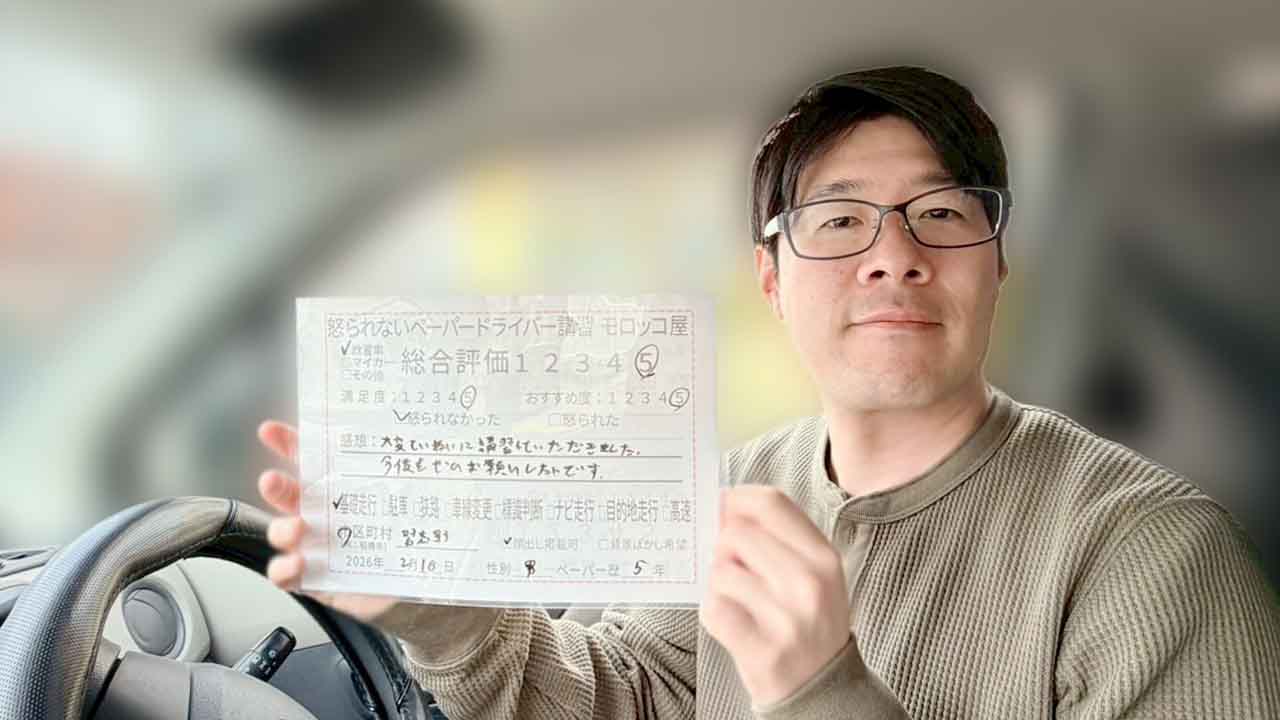 怒られないペーパードライバー講習 モロッコ屋
✓教習車
□マイカー
□その他
総合評価 1 2 3 4 ⑤
満足度:1 2 3 4 ⑤ おすすめ度:1 2 3 4 ⑤
✓怒られなかった □怒られた
感想:大変ていねいに講習していただきました。
今後もぜひお願いしたいです。
✓基礎走行 □駐車 □鋭路 □車線変更 □標識判断 □ナビ走行 □目的地走行 □高速
区町村 習志野
✓顔出し掲載可 □背景ぼかし希望
2026年 2月10日 性別 男 ペーパー歴 5年